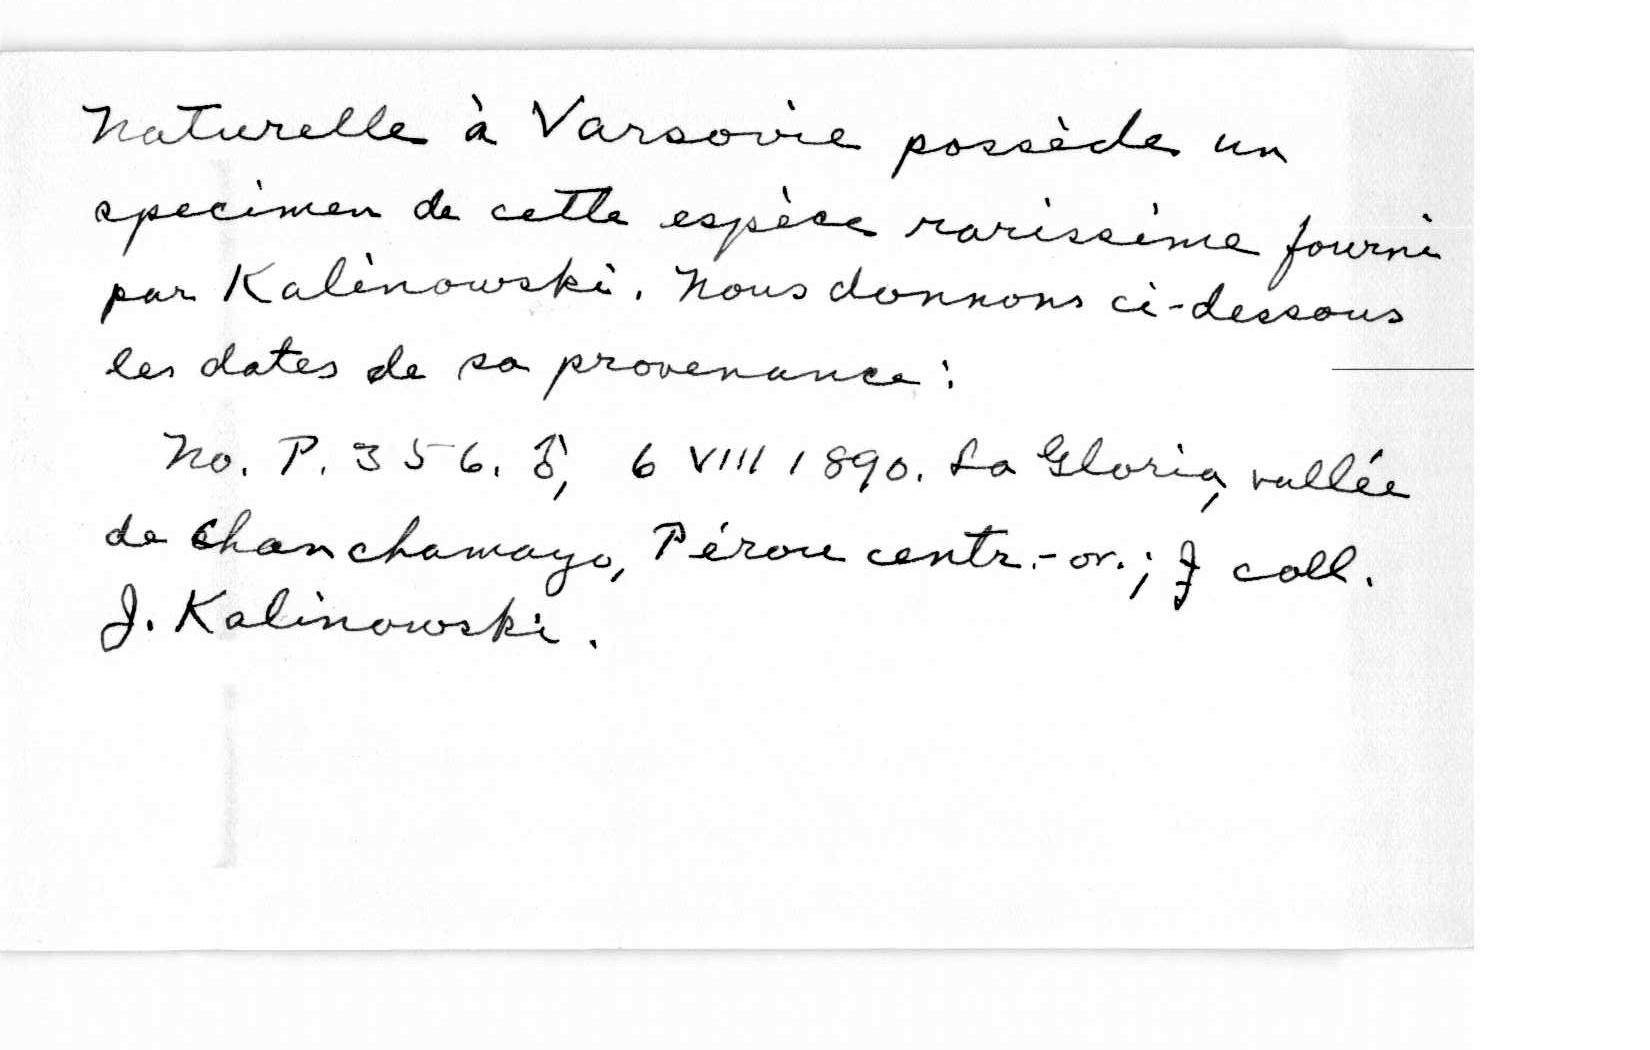 Naturelle à Varsovie possède un
specimen de cette espèce rarissime fourni
par Kalinowski. Nous donnons ci-dessous
les dates de sa provenance:
No. P. 356. ♂, 6 VIII 1890. La Gloria, vallée
de Chanchamayo, Pérou centr.-or.; J coll.
J. Kalinowski.